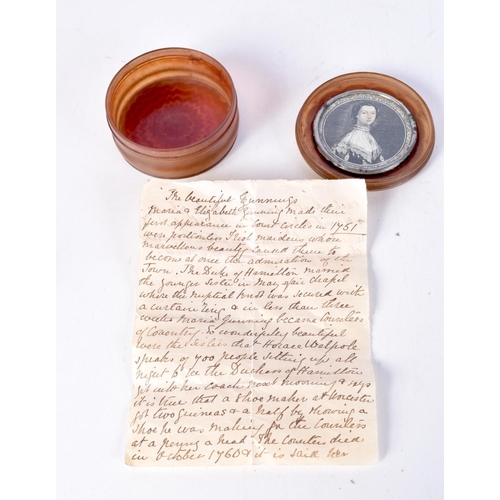 The beautiful Gunnings
Maria & Elizabeth Gunning made their
first appearance in Court circles in 1751
were portionless Irish maidens whose
marvellous beauty caused them to
become at once the admiration of the
Town. The Duke of Hamilton married
the younger Sister in May fair chapel
where the nuptial knot was secured with
a curtain ring & in less than three
weeks Maria Gunning became Countess
of Coventry. So wonderfully beautiful
were the sisters that Horace Walpole
speaks of 700 people sitting up all
night to see the Duchess of Hamilton
get into her coach next morning & says
it is true that a Shoe maker at Worcester
got two guineas & a half by showing a
Shoe he was making for the Countess
at a penny a head. The Countess died
in October 1760 & it is said her